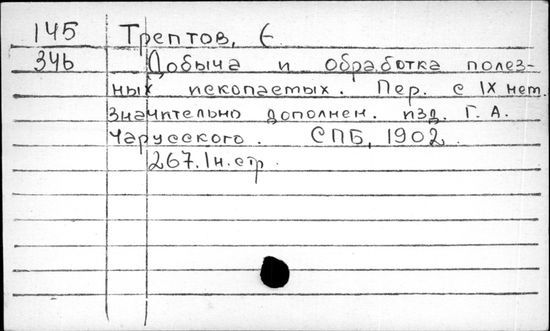 145 Трептов, Е.
346 Добыча и обработка полез-
ных ископаемых. Пер. с IX нем.
значительно дополнен. изд. Г. А.
Чарусского. СПБ, 1902.
267. 1н. стр.